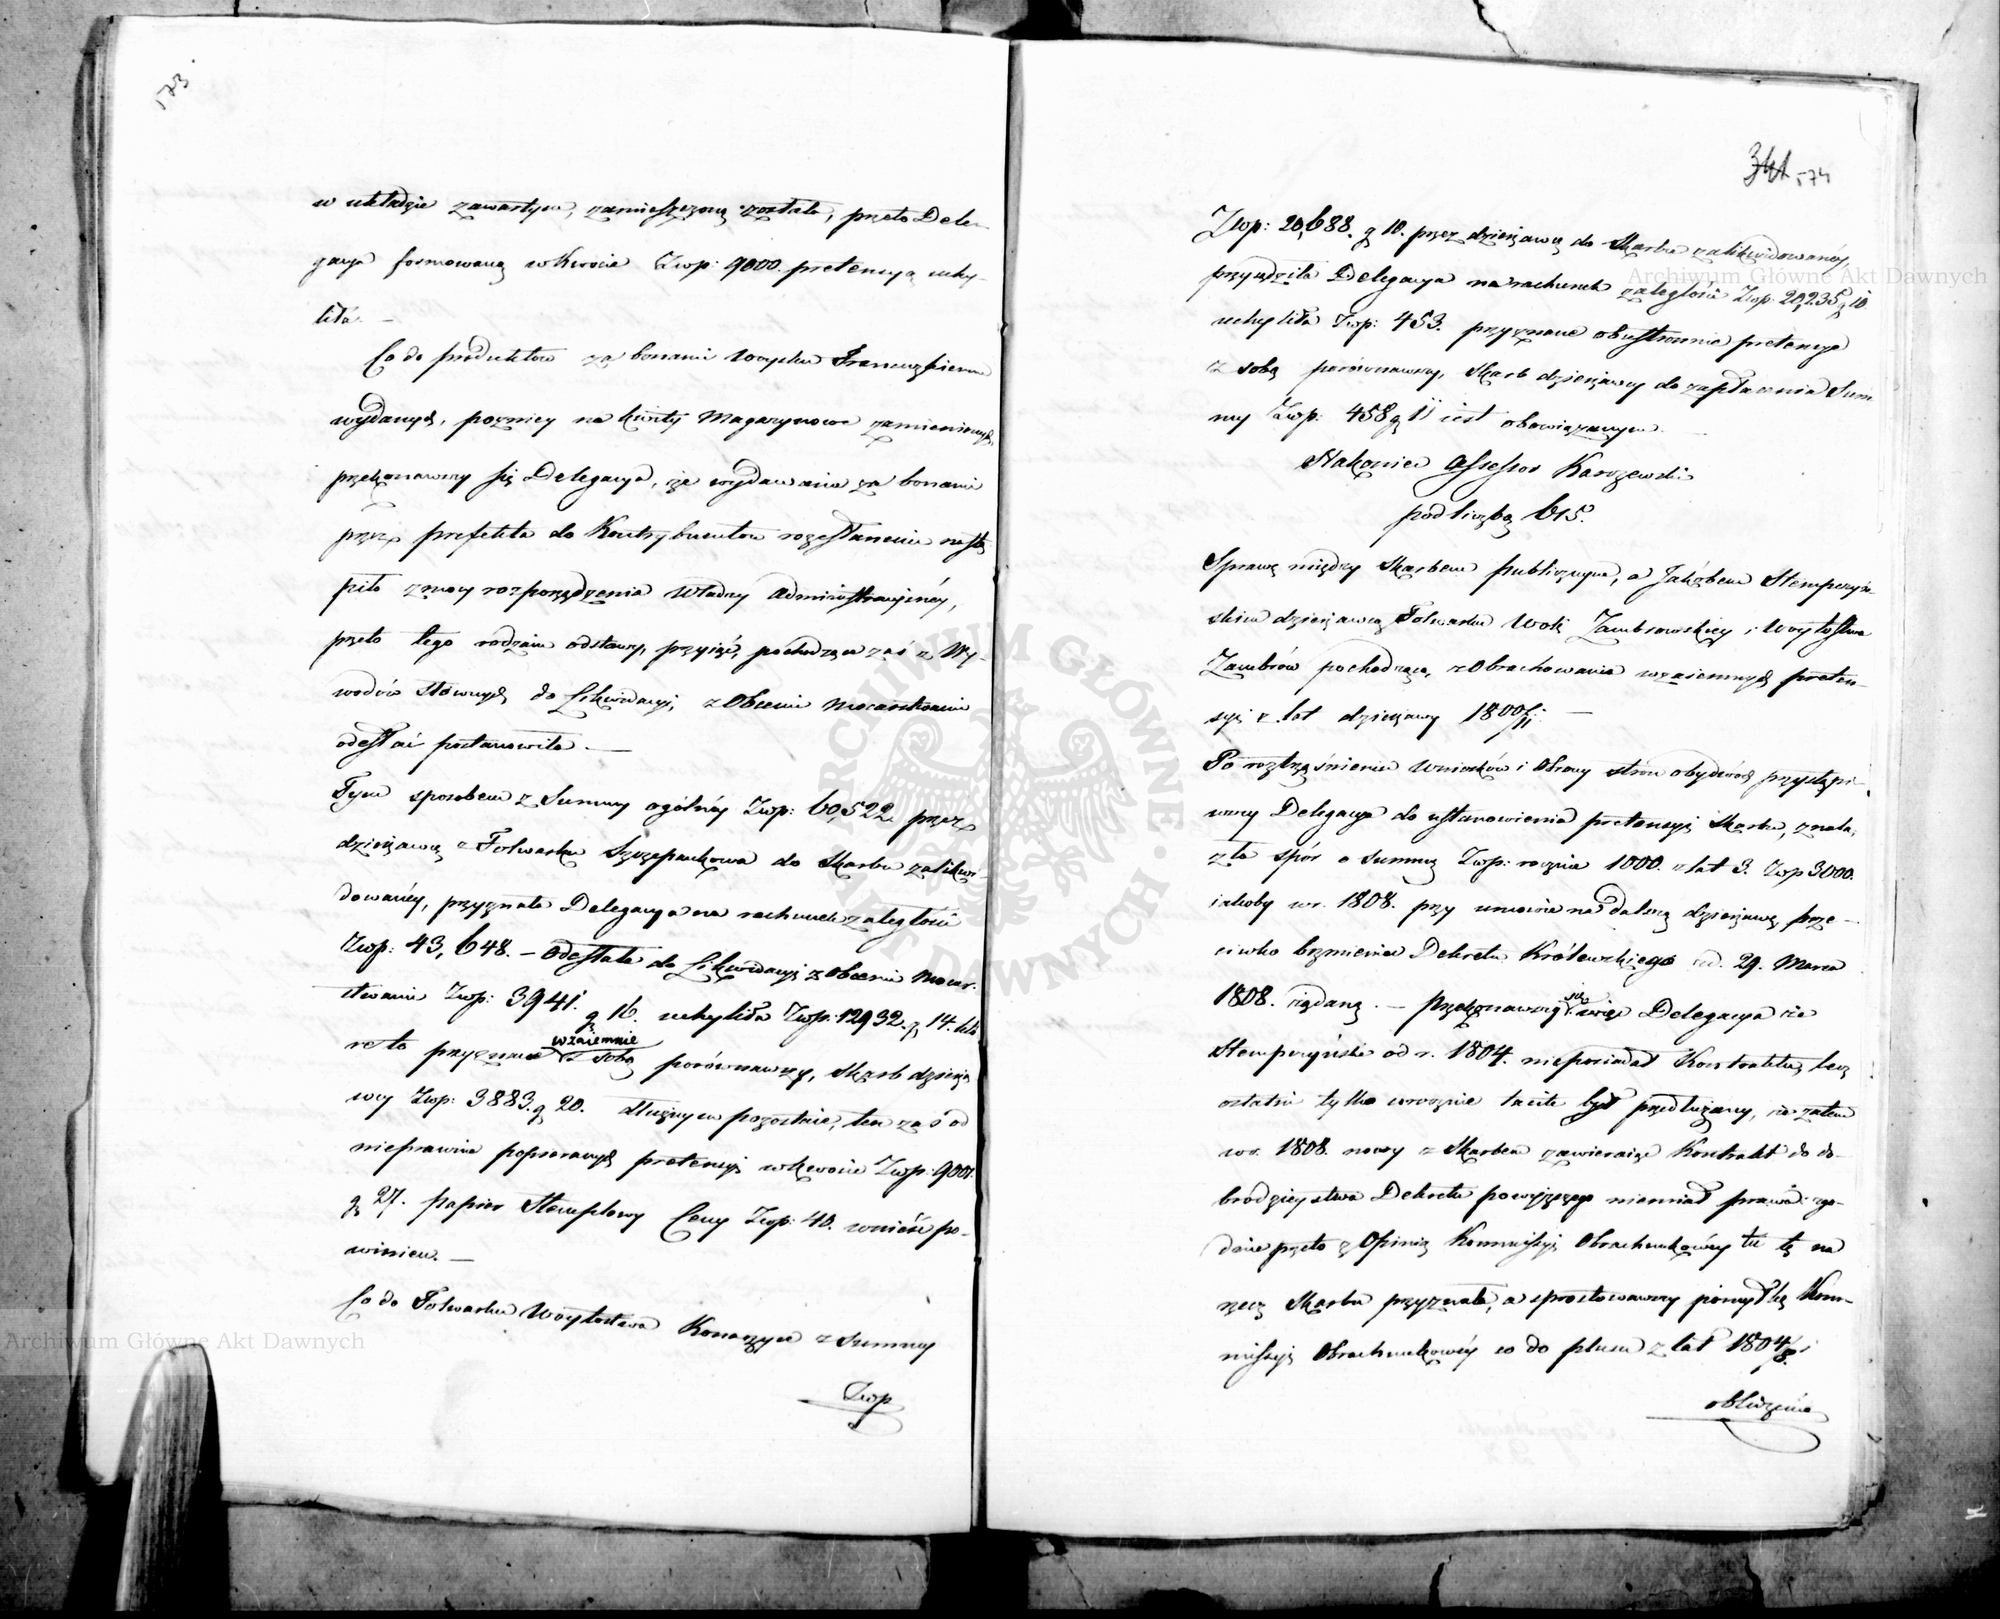 573.
w układzie zawartym, zamieszczoną została, przeto Dele-
gacya formowaną w kwocie Zwp: 9000. pretensyą uchy-
liła. —
Co do produktów za bonami Woysku Francuzkiemu
wydanych, pozniey na kwity Magazynowe zamienionych,
przekonawszy się Delegacya, że wydawanie za bonami
przez prefekta do Kontrybuentów rozesłanemi nastą
piło z mocy rozporządzenia Władzy Administracyiney,
przeto tego rodzaiu odstawy, przyiąć, pochodzące zaś z Wy-
wodów słownych do Likwidacyi, z Obcemi Mocarstwami
odesłać postanowiła. —
Tym sposobem z Summy ogólnéy Zwp: 60,522. przez
dzierżawcę z Folwarku Szczepankowa do Skarbu zalikwi-
dowanéy, przyznała Delegacya na rachunek zaległości
Zwp: 43,648. – Odesłała do Likwidacyi z Obcemi Mocar-
stwami Zwp: 3941. g 16. uchyliła Zwp: 12932. g 14. któ
re to przyznane wzaiemnie z sobą porównawszy, Skarb dzierża
wcy Zwp: 3883. g 20. dłużnym pozostaie, ten zaś od
nieprawnie popieranych pretensyi w kwocie Zwp: 9001.
g 27. papier Stemplowy Ceny Zwp: 40. wnieść po-
winien. —
Co do Folwarku Woytostwa Konarzyce z Summy
Zwp
341 574
Zwp: 20,688. g 10. przez dzierżawcę do Skarbu zalikwidowanéy,
przysądziła Delegacya na rachunek zaległości Zwp: 20,235. g 10
uchyliła Zwp: 453. przyznane obustronnie pretensye
z sobą porównawszy, Skarb dzierżawcy do zapłacenia Sum
my Zwp: 458 g 1 iest obowiązanym. —
Nakoniec Assessor Karczewski
pod liczbą 615.
Sprawę między Skarbem publicznym, a Jakóbem Stempczyń-
skim dzierżawcą Folwarku Woli Zambrowskiey i Woytostwa
Zambrów pochodzącą, z Obrachowania wzaiemnych preten-
syi z lat dzierżawy 1800/11. —
Po roztrząśnieniu Wniosków i Obrony stron obydwóch przystąpi-
wszy Delegacya do ustanowienia pretensyi Skarbu, znala-
zła spór o Summę Zwp: rocznie 1000. z lat 3. Zwp 3000.
iakoby w r. 1808. przy umowie na dalszą dzierżawę, prze-
ciwko brzmieniu Dekretu Królewskiego z d. 29. Marca
1808. żądaną. — Przekonawszy się więc Delegacya że
Stempczyński od r. 1804. nieposiadał Kontraktu, lecz
ostatni tylko corocznie tacite był przedłużany, że zatem
w r. 1808. nowy z Skarbem zawieraiąc Kontrakt do do-
brodzieystwa Dekretu powyższego niemiał prawa zgo-
dnie przeto z Opinią Kommissyi Obrachunkowéy tu tę na
rzecz Skarbu przyznała, a sprostowawszy pomyłkę Kom-
missyi Obrachunkowéy co do plusu z lat 1804/8. i
obliczenia
Archiwum Główne Akt Dawnych
Archiwum Główne Akt Dawnych
ARCHIWUM GŁÓWNE AKT DAWNYCH